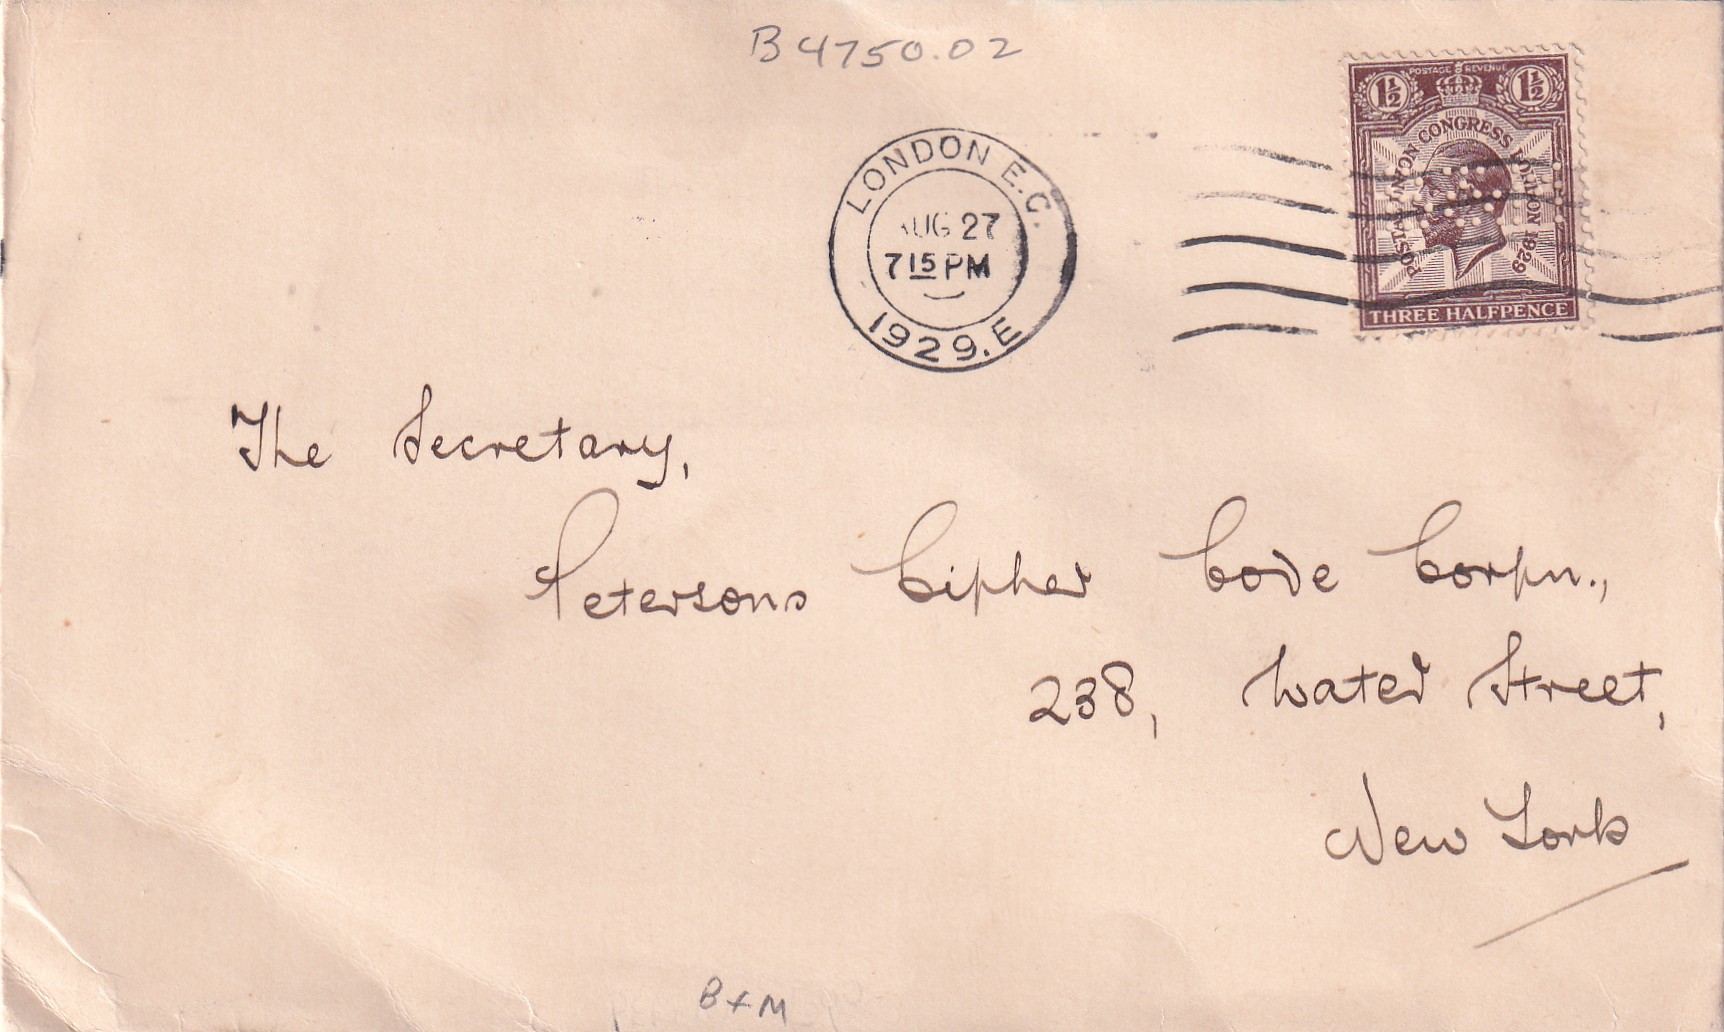 B4750.02
POSTAGE REVENUE
1½ 1½
POSTAL UNION CONGRESS LONDON 1929
THREE HALFPENCE
LONDON E.C.
AUG 27
7 15 PM
1929. E
The Secretary,
Petersons Cipher Code Corpn.,
238, Water Street,
New York
B+M